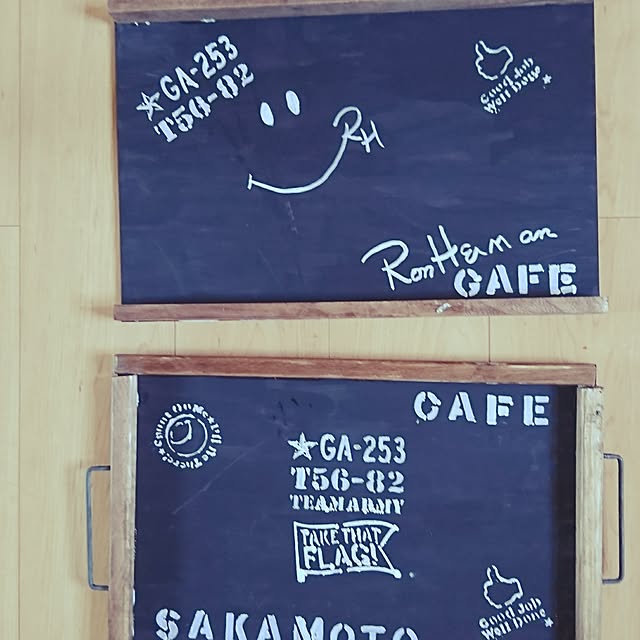 GA-253
T56-82
Good Job
Well Done
RH
Ron Herman
CAFE
CAFE
GA-253
T56-82
TEAM ARMY
TAKE THAT
FLAG!
Good Job
Well Done
SAKAMOTO